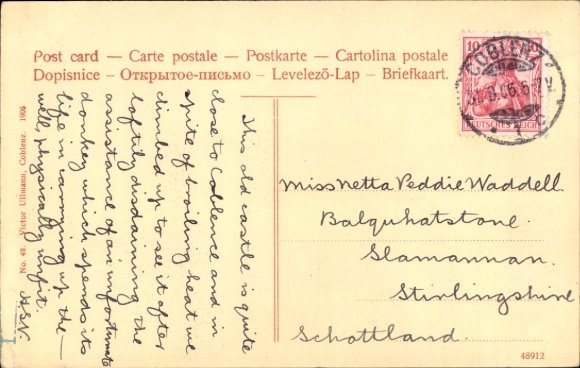 Post card — Carte postale — Postkarte — Cartolina postale
Dopisnice — Открытое-письмо — Levelezõ-Lap — Briefkaart.
COBLENZ
DEUTSCHES REICH
This old castle is quite
close to Coblence and in
spite of broiling heat we
climbed up to see it after
loftily disdaining the
assistance of an unfortunate
donkey which spends its
life in carrying up the —
well, physically unfit.
H.S.N.
Miss Netta Peddie Waddell.
Balquhatstone.
Slamannan.
Stirlingshire
Schottland.
No. 48. Victor Ullmann, Coblenz.
48912